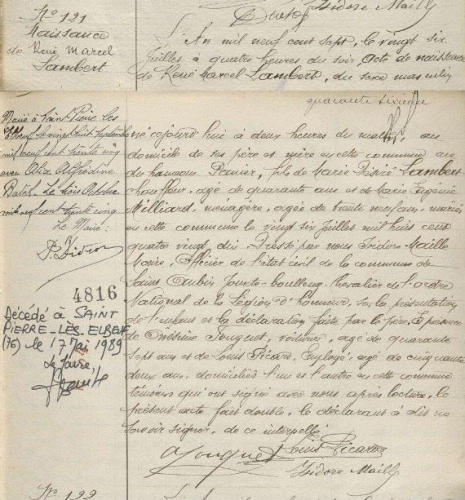 Isidore Mailly
No 121
Naissance
de René Marcel
Lambert
L'An mil neuf cent sept, le vingt six
Juillet à quatre heures du soir, Acte de naissance
de René Marcel Lambert, du sexe masculin
quarante
Marié à Saint Pierre les
mil neuf cent trente cinq
avec Alice Alfrédine
le trois Octobre
mil neuf cent trente cinq
Le Maire
né aujourd'hui à deux heures du matin, au
domicile de ses père et mère en cette commune au
de hameau, fils de Marie Désiré Lambert
chauffeur, âgé de quarante ans et de Marie Eugénie
Milliard, ménagère, âgée de trente neuf ans, mariés
en cette commune le vingt six Juillet mil huit cent
quatre vingt dix. Dressé par nous Isidore Mailly
Maire, Officier de l'état civil de la commune de
Saint Aubin Jouxte-boulleng, Chevalier de l'ordre
National de la Légion d'Honneur, sur la présentation
de l'enfant et la déclaration faite par le père. En présence
de Onésime Jouquet, voiturier, âgé de quarante
sept ans et de Louis Picard, Employé, âgé de cinquante
deux ans, domiciliés l'un et l'autre en cette commune
témoins qui ont signé avec nous après lecture, le
présent acte fait double, le déclarant a dit ne
savoir signer, de ce interpellé.
4816
Décédé à SAINT
PIERRE-LÈS-ELBEUF
(76) le 17 Mai 1989
Le Maire,
O Jouquet Louis Picard
Isidore Mailly
No 122